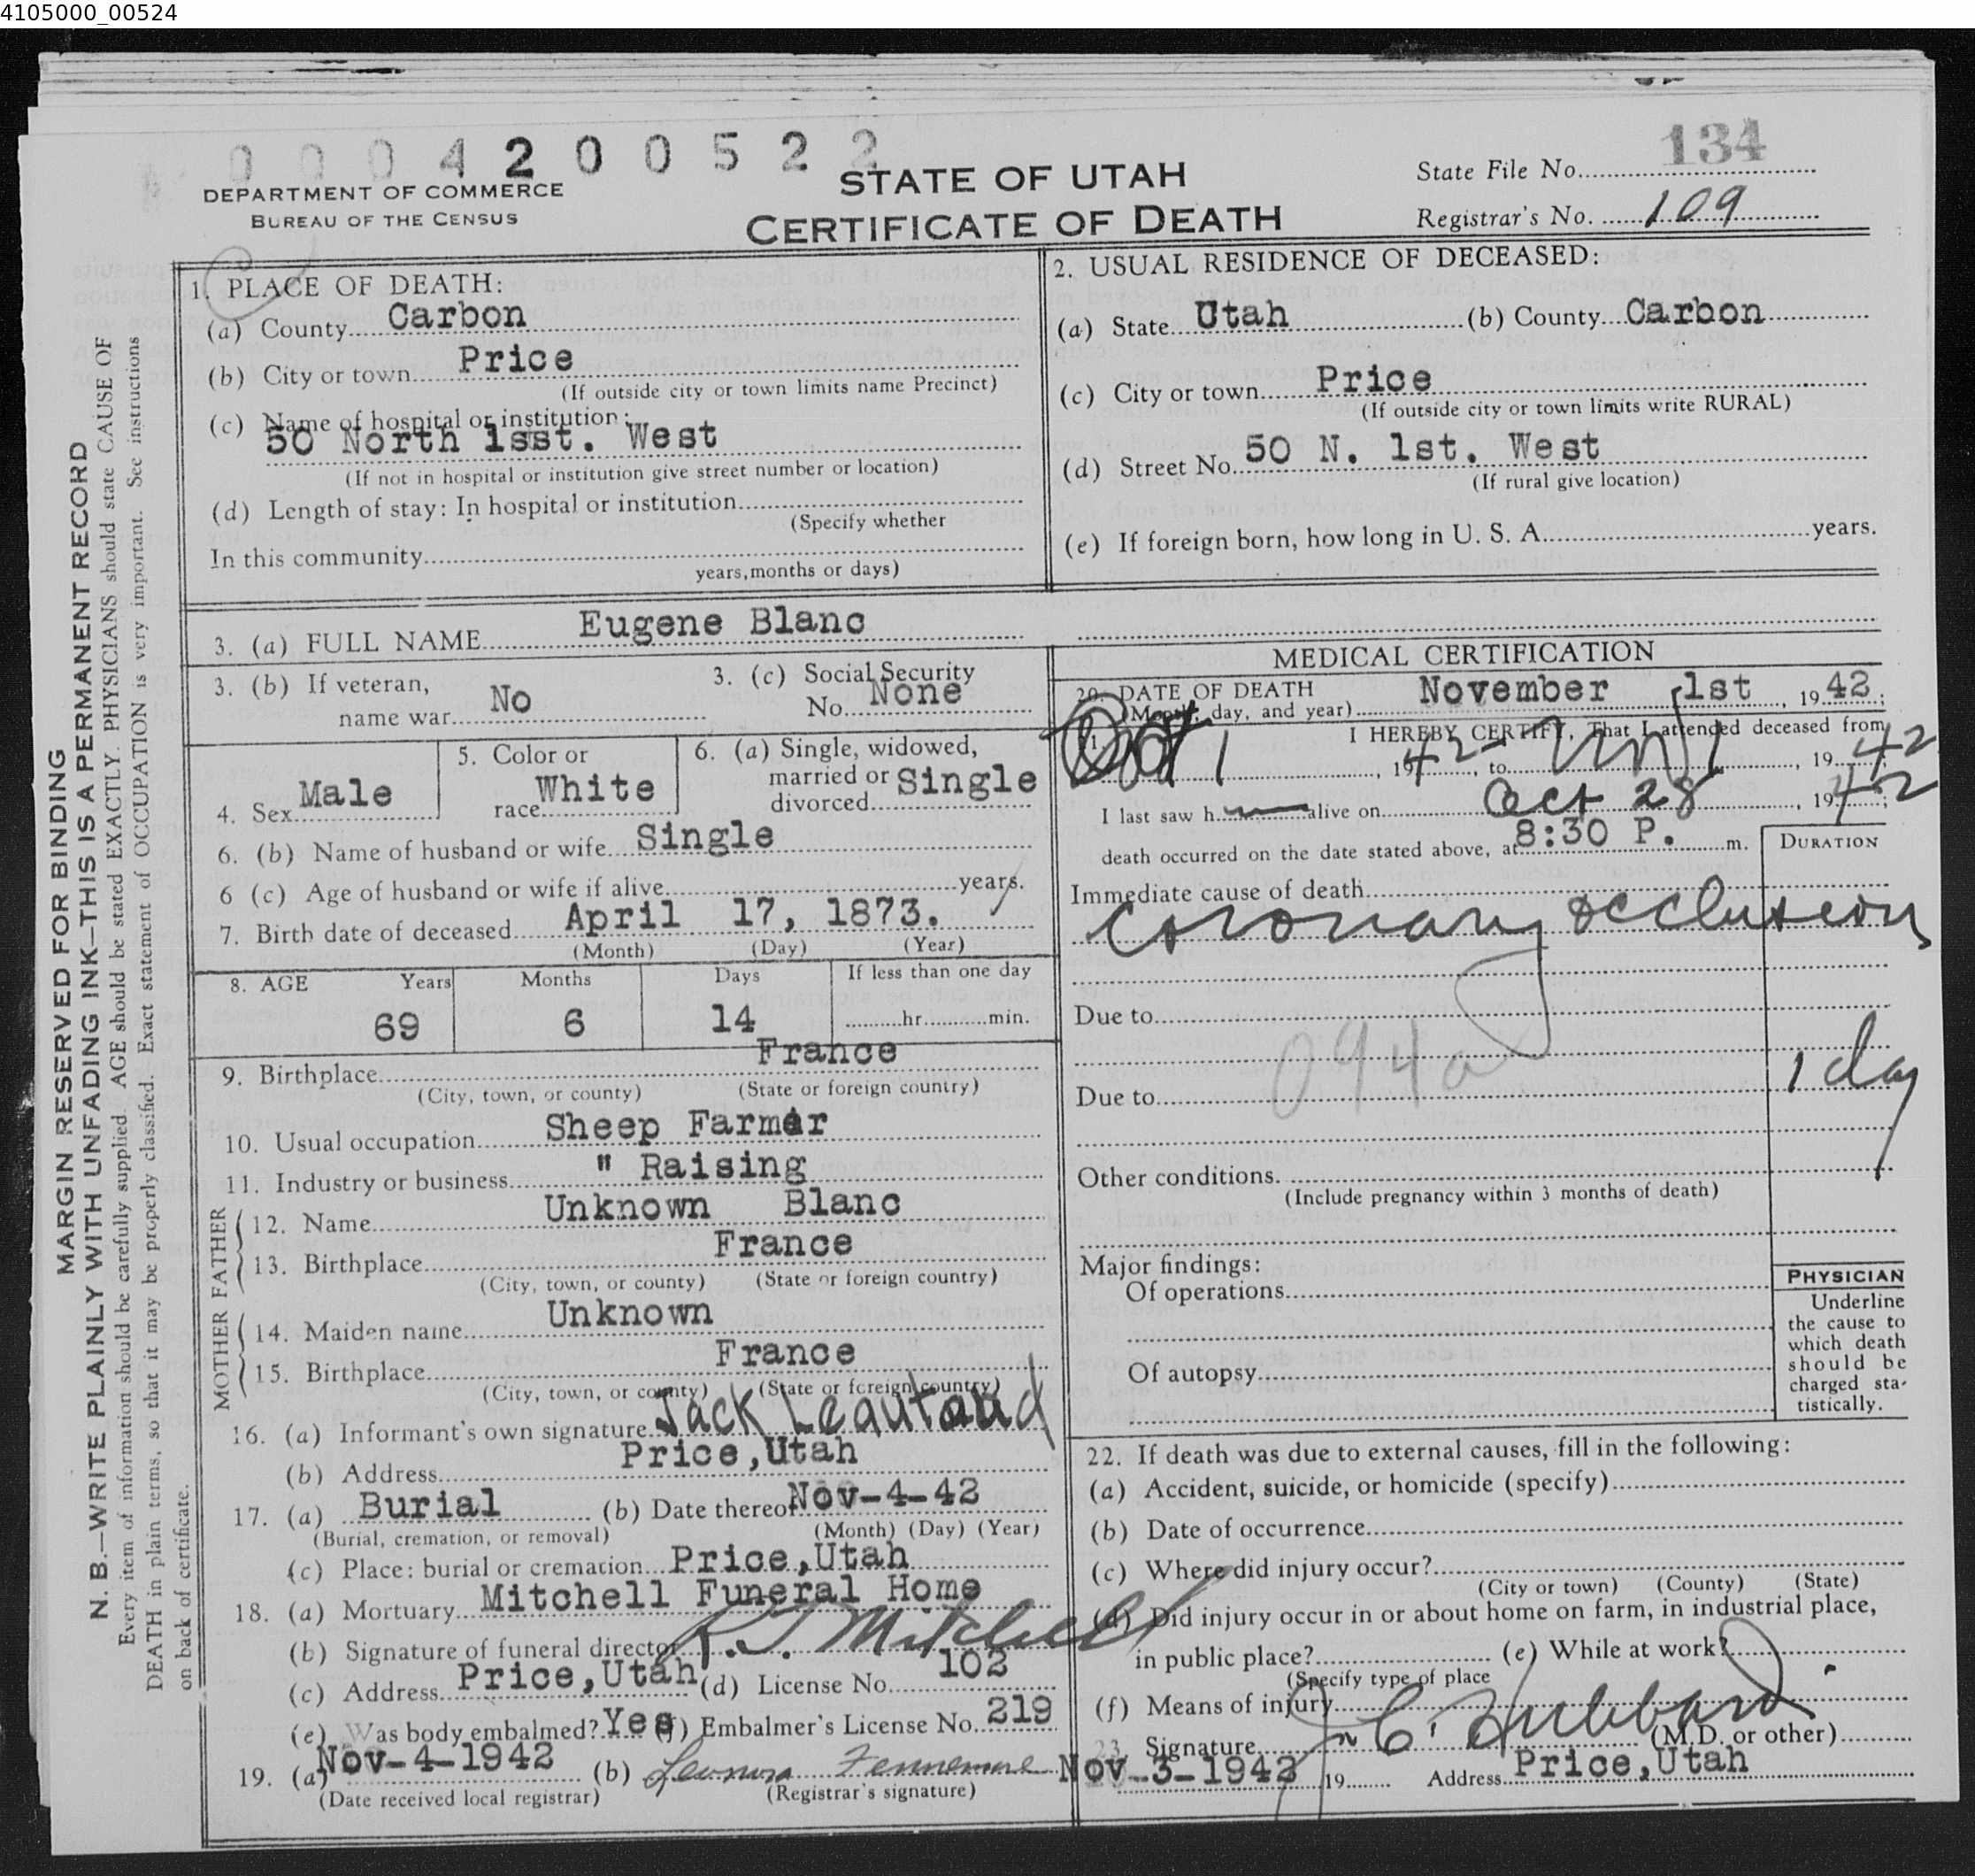 4105000_00524
0004200522
134
DEPARTMENT OF COMMERCE
BUREAU OF THE CENSUS
STATE OF UTAH
CERTIFICATE OF DEATH
State File No.
Registrar's No. 109
1. PLACE OF DEATH:
(a) County Carbon
(b) City or town Price
(If outside city or town limits name Precinct)
(c) Name of hospital or institution:
50 North 1sst. West
(If not in hospital or institution give street number or location)
(d) Length of stay: In hospital or institution
(Specify whether
In this community
years, months or days)
2. USUAL RESIDENCE OF DECEASED:
(a) State Utah (b) County Carbon
(c) City or town Price
(If outside city or town limits write RURAL)
(d) Street No. 50 N. 1st. West
(If rural give location)
(e) If foreign born, how long in U. S. A. years.
3. (a) FULL NAME Eugene Blanc
3. (b) If veteran, name war No
3. (c) Social Security No. None
4. Sex Male
5. Color or race White
6. (a) Single, widowed, married or divorced Single
6. (b) Name of husband or wife Single
6 (c) Age of husband or wife if alive years.
7. Birth date of deceased April 17, 1873.
(Month) (Day) (Year)
8. AGE Years Months Days If less than one day
69 6 14 hr. min.
9. Birthplace France
(City, town, or county) (State or foreign country)
10. Usual occupation Sheep Farmer
11. Industry or business " Raising
FATHER
12. Name Unknown Blanc
13. Birthplace France
(City, town, or county) (State or foreign country)
MOTHER
14. Maiden name Unknown
15. Birthplace France
(City, town, or county) (State or foreign country)
16. (a) Informant's own signature Jack Leautaud
(b) Address Price, Utah
17. (a) Burial (b) Date thereof Nov-4-42
(Burial, cremation, or removal) (Month) (Day) (Year)
(c) Place: burial or cremation Price, Utah
18. (a) Mortuary Mitchell Funeral Home
(b) Signature of funeral director Mitchell
(c) Address Price, Utah (d) License No. 102
(e) Was body embalmed? Yes (f) Embalmer's License No. 219
19. (a) Nov-4-1942 (b) Leonora Fennemore
(Date received local registrar) (Registrar's signature)
MEDICAL CERTIFICATION
20. DATE OF DEATH
(Month, day, and year) November 1st, 1942;
21. I HEREBY CERTIFY, That I attended deceased from
Oct 1, 1942, to Nov 1, 1942;
I last saw h alive on Oct 28, 1942;
death occurred on the date stated above, at 8:30 P. m.
DURATION
Immediate cause of death
Coronary occlusion
Due to
094a
Due to
1 day
Other conditions.
(Include pregnancy within 3 months of death)
Major findings:
Of operations
Of autopsy
PHYSICIAN
Underline
the cause to
which death
should be
charged sta-
tistically.
22. If death was due to external causes, fill in the following:
(a) Accident, suicide, or homicide (specify)
(b) Date of occurrence
(c) Where did injury occur?
(City or town) (County) (State)
(d) Did injury occur in or about home on farm, in industrial place,
in public place? (e) While at work?
(Specify type of place
(f) Means of injury
23. Signature C. Hubbard (M.D. or other)
Nov-3-1942 19 Address Price, Utah
MARGIN RESERVED FOR BINDING
N. B.—WRITE PLAINLY WITH UNFADING INK—THIS IS A PERMANENT RECORD
Every item of information should be carefully supplied. AGE should be stated EXACTLY. PHYSICIANS should state CAUSE OF
DEATH in plain terms, so that it may be properly classified. Exact statement of OCCUPATION is very important. See instructions
on back of certificate.